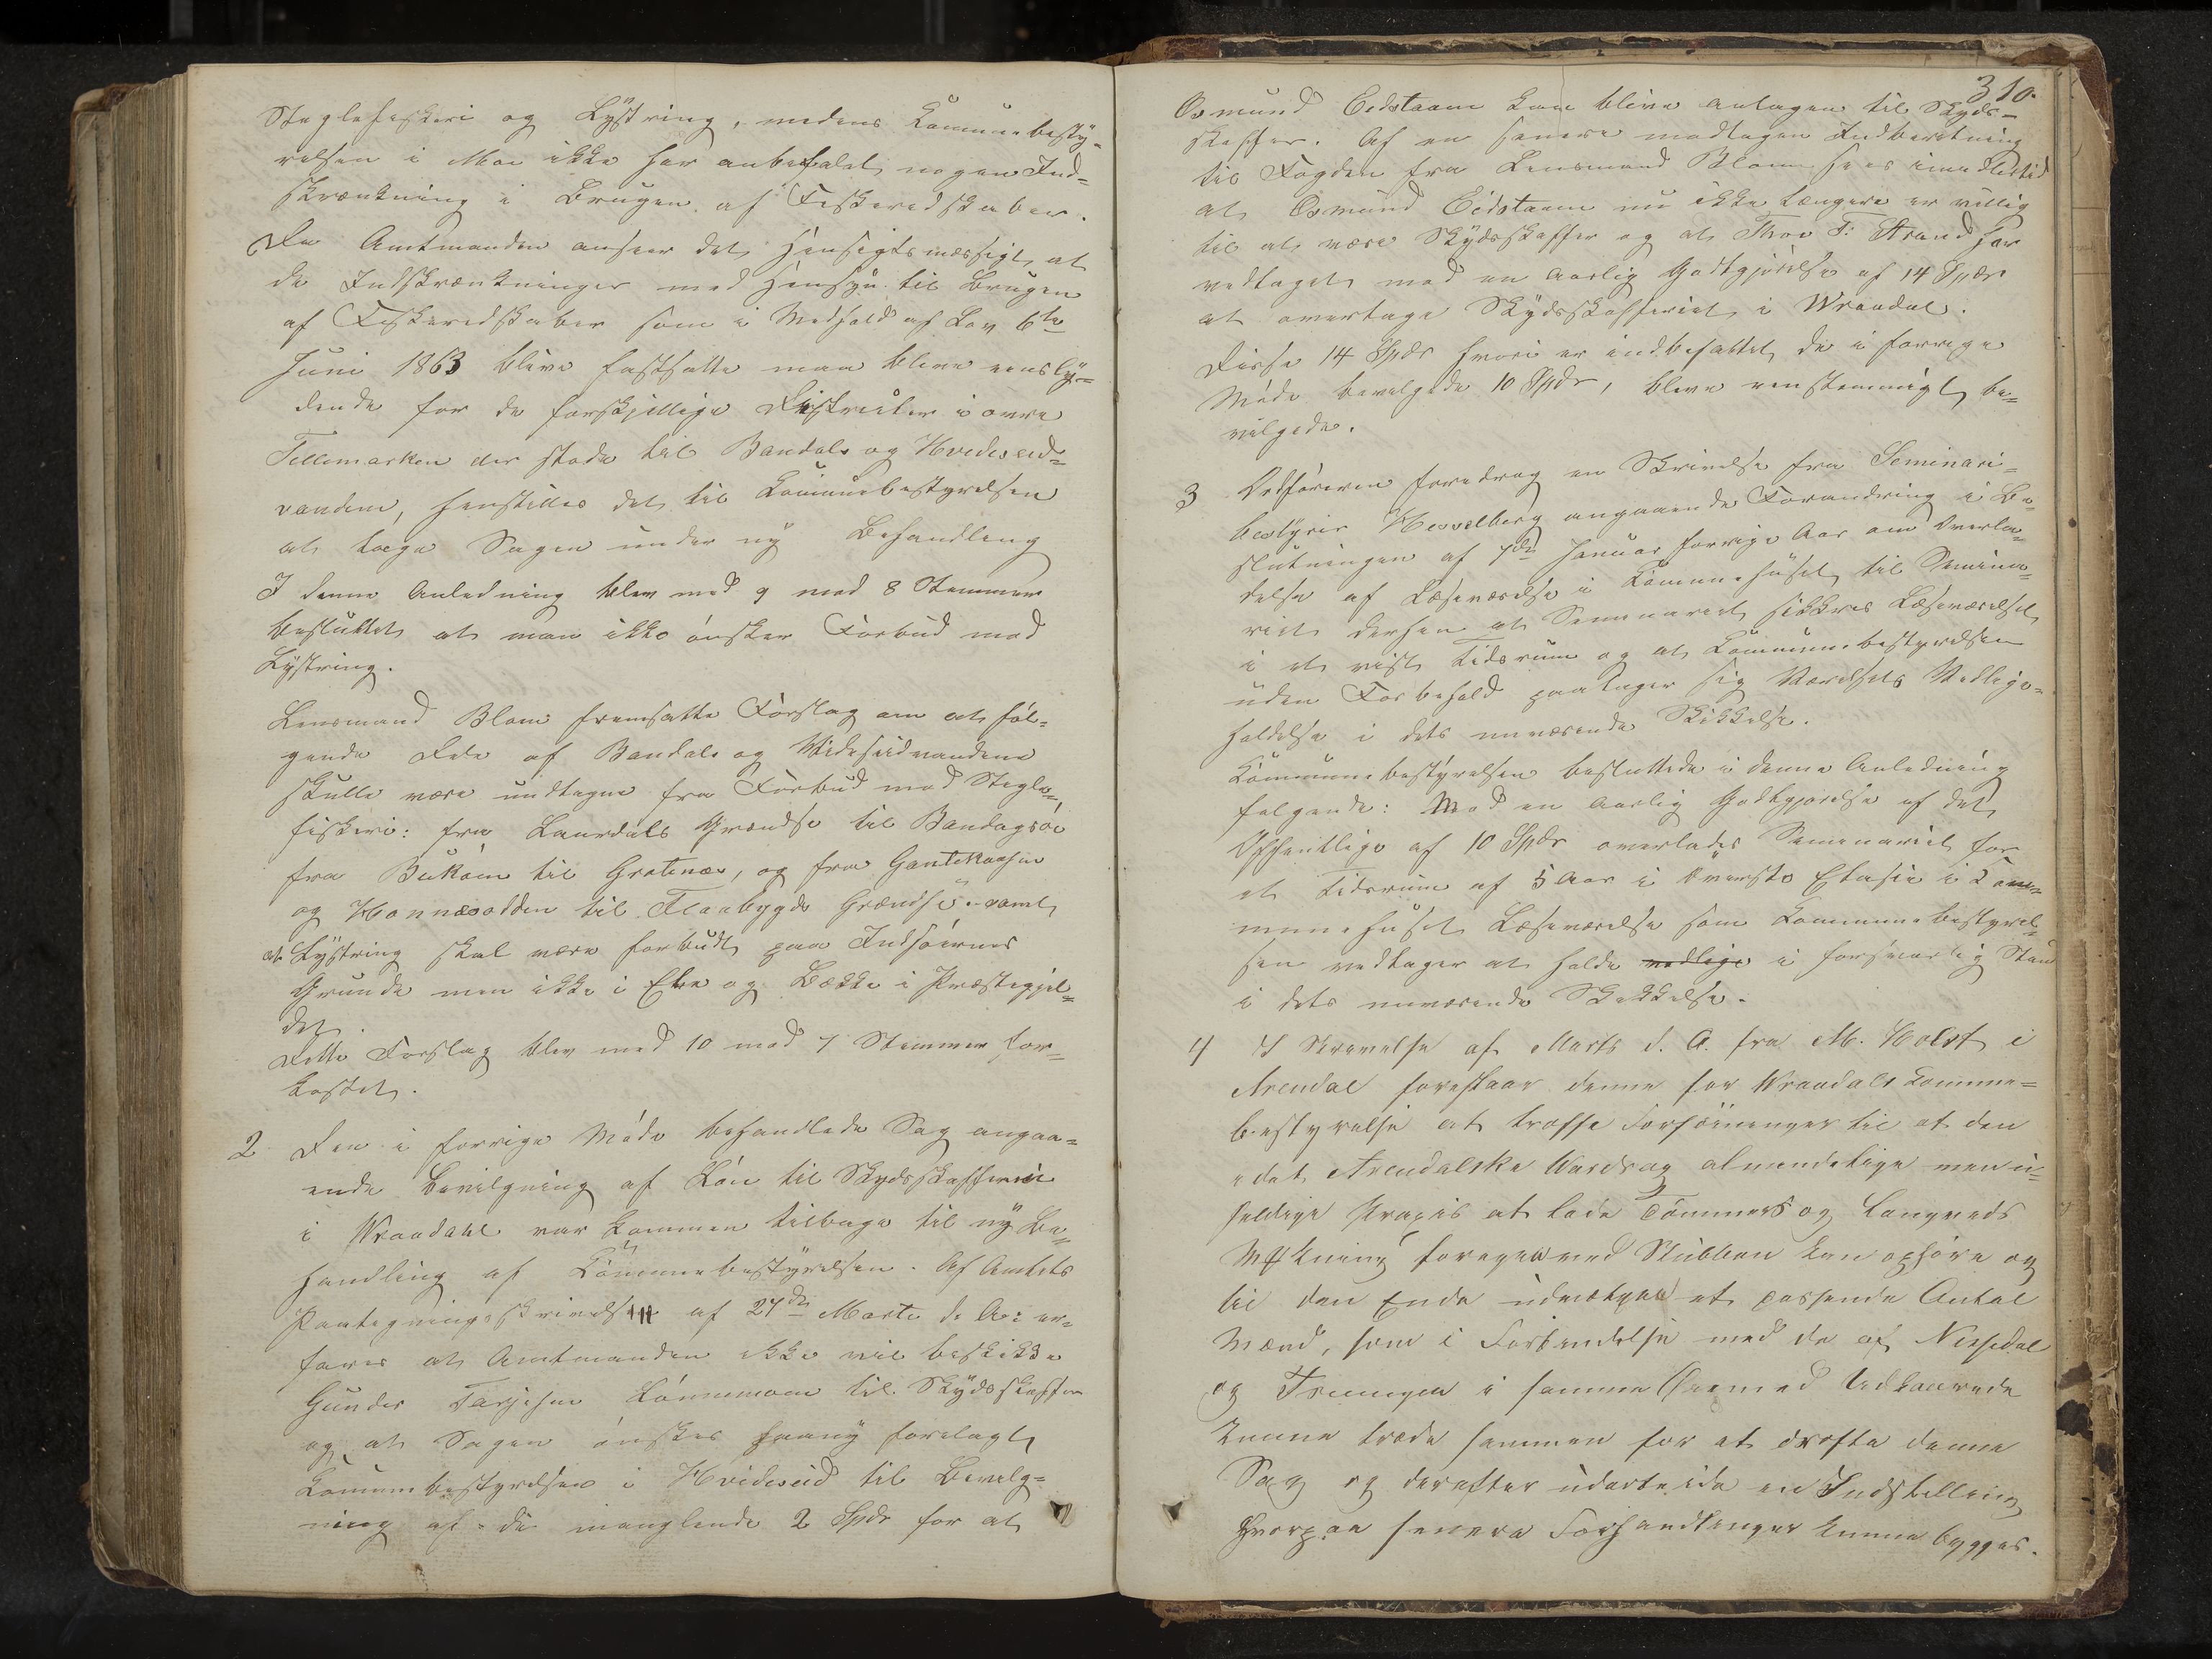 Steglefiskeri og Lystring, medens Kommunebesty-
relsen i Moe ikke har anbefalet nogen Ind-
skrænkning i Brugen af Fiskeredskaber.
Da Amtmanden anseer det hensigtsmæssigt at
de Indskrænkninger med Hensyn til Brugen
af Fiskeredskaber som i Medhold af Lov 6te
Juni 1863 blive fastsatte maa blive eensly-
dende for de forskjellige Distrikter i øvre
Tellemarken der støde til Bandaks og Hvideseid-
vandene, henstilles det til Kommunebestyrelsen
at tage Sagen under ny Behandling
I denne Anledning blev med 9 mod 8 Stemmer
besluttet at man ikke ønsker Forbud mod
Lystring.
Lensmand Blom fremsatte Forslag om at føl-
gende Dele af Bandaks og Hvideseidvandene
skulle være undtagne fra Forbud mod Stegle-
fiskeri: fra Laurdals Grændse til Bandagsøe
fra Bukam til Grotenæs, og fra
og Honnæsodden til Flaabygds Grændse samt
at Lystring skal være forbudt paa Indsøernes
Grunde men ikke i Elve og Bække i Præstegjel-
det.
Dette Forslag blev med 10 mod 7 Stemmer for-
kastet.
2 Den i forrige Møde behandlede Sag angaa-
ende Bevilgning af Løn til Skydsskafferi
i Vraadahl var kommen tilbage til ny Be-
handling af Kommunebestyrelsen. Af Amtets
Paategningsskrivelse af 27de Marts d. A. er-
fares at Amtmanden ikke vil beskikke
Gunder Tarjesen Lønnemoen til Skydsskaffer
og at Sagen ønskes paany forelagt
Kommunebestyrelsen i Hvideseid til Bevilg-
ning af de manglende 2 Spdr for at
310.
Osmund Eidstaam kan blive antagen til Skyds-
skaffer. Af en senere modtagen Indberetning
til Fogden fra Lensmand Blom sees imidlertid
at Osmund Eidstaam nu ikke længere er villig
til at være Skydsskaffer og at Thor T: Strand har
vedtaget mod en aarlig Godtgjørelse af 14 Spdr
at overtage Skydsskafferiet i Vraadal.
Disse 14 Spdr hvori er indbefattet de i forrige
Møde bevilgede 10 Spdr, bleve eenstemmigt be-
vilgede.
3 Ordføreren foredrog en Skrivelse fra Seminari-
bestyrer Hesselberg angaaende Forandring i Be-
slutningen af 7de Januar forrige Aar om Overla-
delse af Læseværelse i Kommunehuset til Semina-
riet dersom at Seminariet sikkres Læseværelset
i et vist Tidsrum og at Kommunebestyrelsen
uden Forbehold paatager sig Værelsets Vedlige-
holdelse i dets nuværende Skikkelse.
Kommunebestyrelsen besluttede i denne Anledning
følgende: Mod en aarlig Godtgjørelse af det
Offentlige af 10 Spdr overlades Seminariet for
et Tidsrum af 5 Aar i øverste Etasje i Kom-
munehuset Læseværelse som Kommunebestyrel-
sen vedtager at holde vedlige i forsvarlig Stand
i dets nuværende Skikkelse.
4 I Skrivelse af Marts d. A. fra M. Holst i
Arendal foreslaar denne for Vraadals Komune-
bestyrelse at træffe Forføininger til at den
i det Arendalske Vasdrag almindelige men u-
heldige Praxis at lade Tømmers og Langveds
Mærkning foregaa ved Stubben kan ophøre og
til den Ende udvælges et passende Antal
Mænd, som i Forbindelse med de af Nissedal
og Treungen i samme Øiemed Udkaarede
kunne træde sammen for at drøfte denne
Sag og derefter udarbeide en Indstilling
hvorpaa senere Forhandlinger kunne bygges.